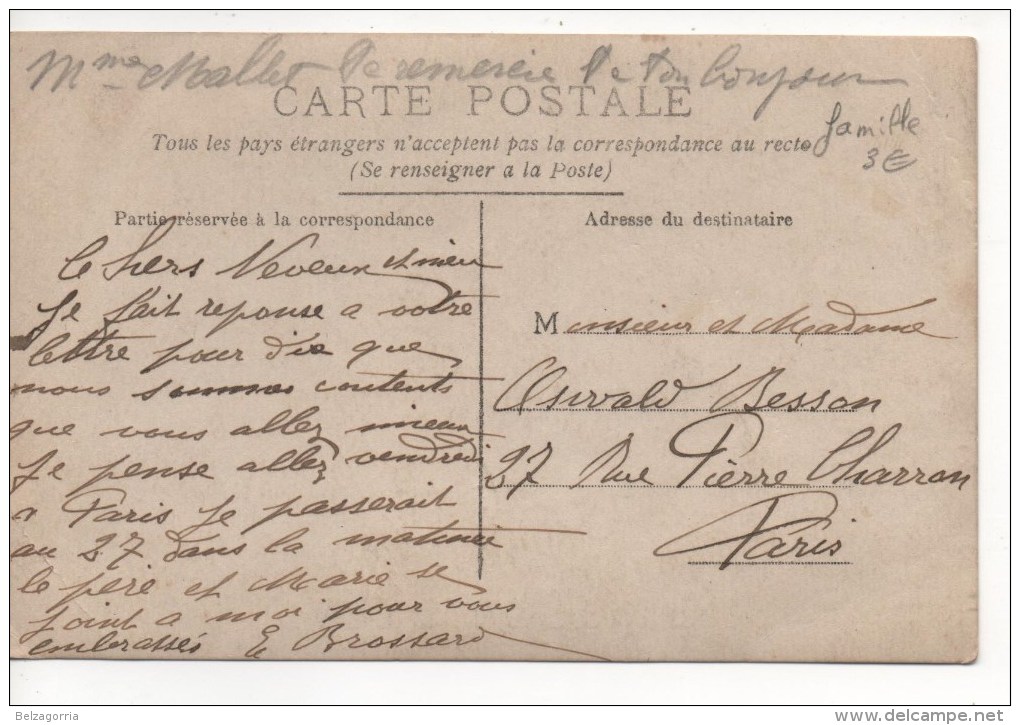 Mme Mallet te remercie de ton bonjour
CARTE POSTALE
famille
3€
Tous les pays étrangers n'acceptent pas la correspondance au recto
(Se renseigner a la Poste)
Partie réservée à la correspondance
Adresse du destinataire
Chers Neveux et
Je fait reponse a votre
lettre pour dire que
nous sommes contents
que vous allez mieux
Je pense allez vendredi
a Paris je passerait
au 27 dans la matinée
le père et Marie se
joint a moi pour vous
embrassés E Brossard
Monsieur et Madame
Oswald Besson
27 Rue Pierre Charron
Paris
Belzagorria
www.delcampe.net